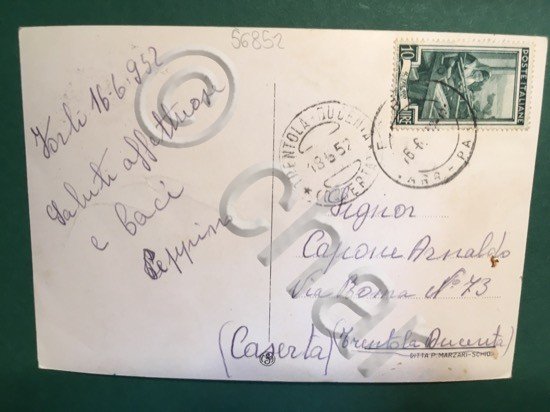 56852
Forlì 16-6-952
Saluti affettuosi
e baci
Peppino
10
POSTE ITALIANE
TRENTOLA-DUCENTA
18.6.52
ARR - PA
Signor
Capone Arnaldo
Via Roma N° 73
(Caserta) (Trentola Ducenta)
DITTA P. MARZARI-SCHIO
©